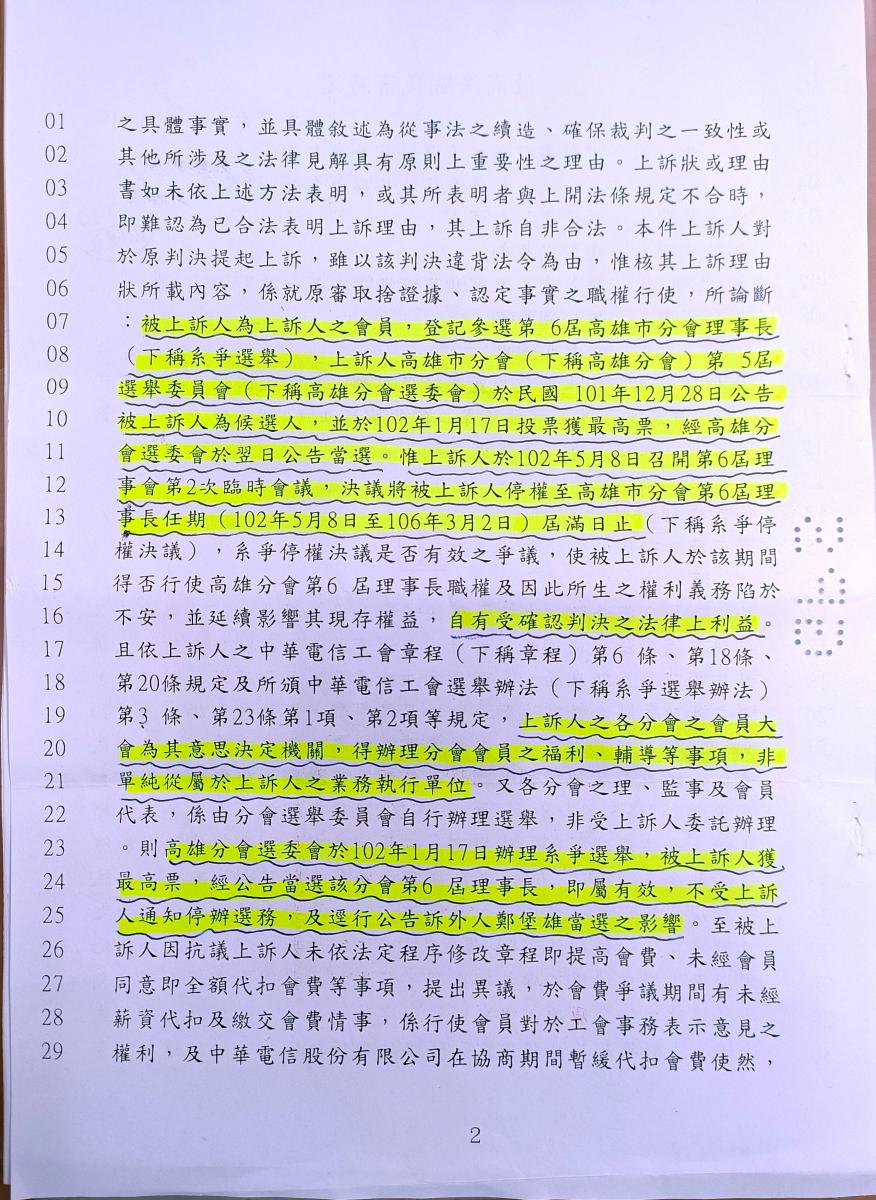 01 之具體事實，並具體敘述為從事法之續造、確保裁判之一致性或
02 其他所涉及之法律見解具有原則上重要性之理由。上訴狀或理由
03 書如未依上述方法表明，或其所表明者與上開法條規定不合時，
04 即難認為已合法表明上訴理由，其上訴自非合法。本件上訴人對
05 於原判決提起上訴，雖以該判決違背法令為由，惟核其上訴理由
06 狀所載內容，係就原審取捨證據、認定事實之職權行使，所論斷
07 ：被上訴人為上訴人之會員，登記參選第 6屆高雄市分會理事長
08 （下稱系爭選舉），上訴人高雄市分會（下稱高雄分會）第 5屆
09 選舉委員會（下稱高雄分會選委會）於民國 101年12月28日公告
10 被上訴人為候選人，並於102年1月17日投票獲最高票，經高雄分
11 會選委會於翌日公告當選。惟上訴人於102年5月8日召開第6屆理
12 事會第2次臨時會議，決議將被上訴人停權至高雄市分會第6屆理
13 事長任期（102年5月8日至106年3月2日）屆滿日止（下稱系爭停
14 權決議），系爭停權決議是否有效之爭議，使被上訴人於該期間
15 得否行使高雄分會第6 屆理事長職權及因此所生之權利義務陷於
16 不安，並延續影響其現存權益，自有受確認判決之法律上利益。
17 且依上訴人之中華電信工會章程（下稱章程）第6 條、第18條、
18 第20條規定及所頒中華電信工會選舉辦法（下稱系爭選舉辦法）
19 第3 條、第23條第1項、第2項等規定，上訴人之各分會之會員大
20 會為其意思決定機關，得辦理分會會員之福利、輔導等事項，非
21 單純從屬於上訴人之業務執行單位。又各分會之理、監事及會員
22 代表，係由分會選舉委員會自行辦理選舉，非受上訴人委託辦理
23 。則高雄分會選委會於102年1月17日辦理系爭選舉，被上訴人獲
24 最高票，經公告當選該分會第6 屆理事長，即屬有效，不受上訴
25 人通知停辦選務，及逕行公告訴外人鄭堡雄當選之影響。至被上
26 訴人因抗議上訴人未依法定程序修改章程即提高會費、未經會員
27 同意即全額代扣會費等事項，提出異議，於會費爭議期間有未經
28 薪資代扣及繳交會費情事，係行使會員對於工會事務表示意見之
29 權利，及中華電信股份有限公司在協商期間暫緩代扣會費使然，
2